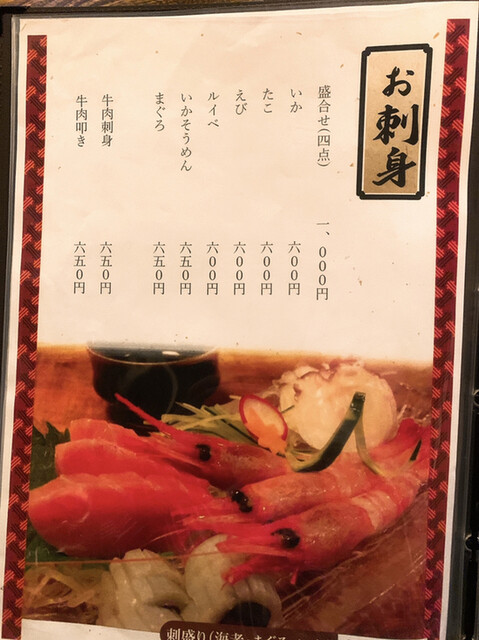 お刺身
盛合せ(四点) 一、000円
いか 六00円
たこ 六00円
えび 六00円
ルイベ 六00円
いかそうめん 六五0円
まぐろ 六五0円
牛肉刺身 六五0円
牛肉叩き 六五0円
刺盛り(海老、まぐろ